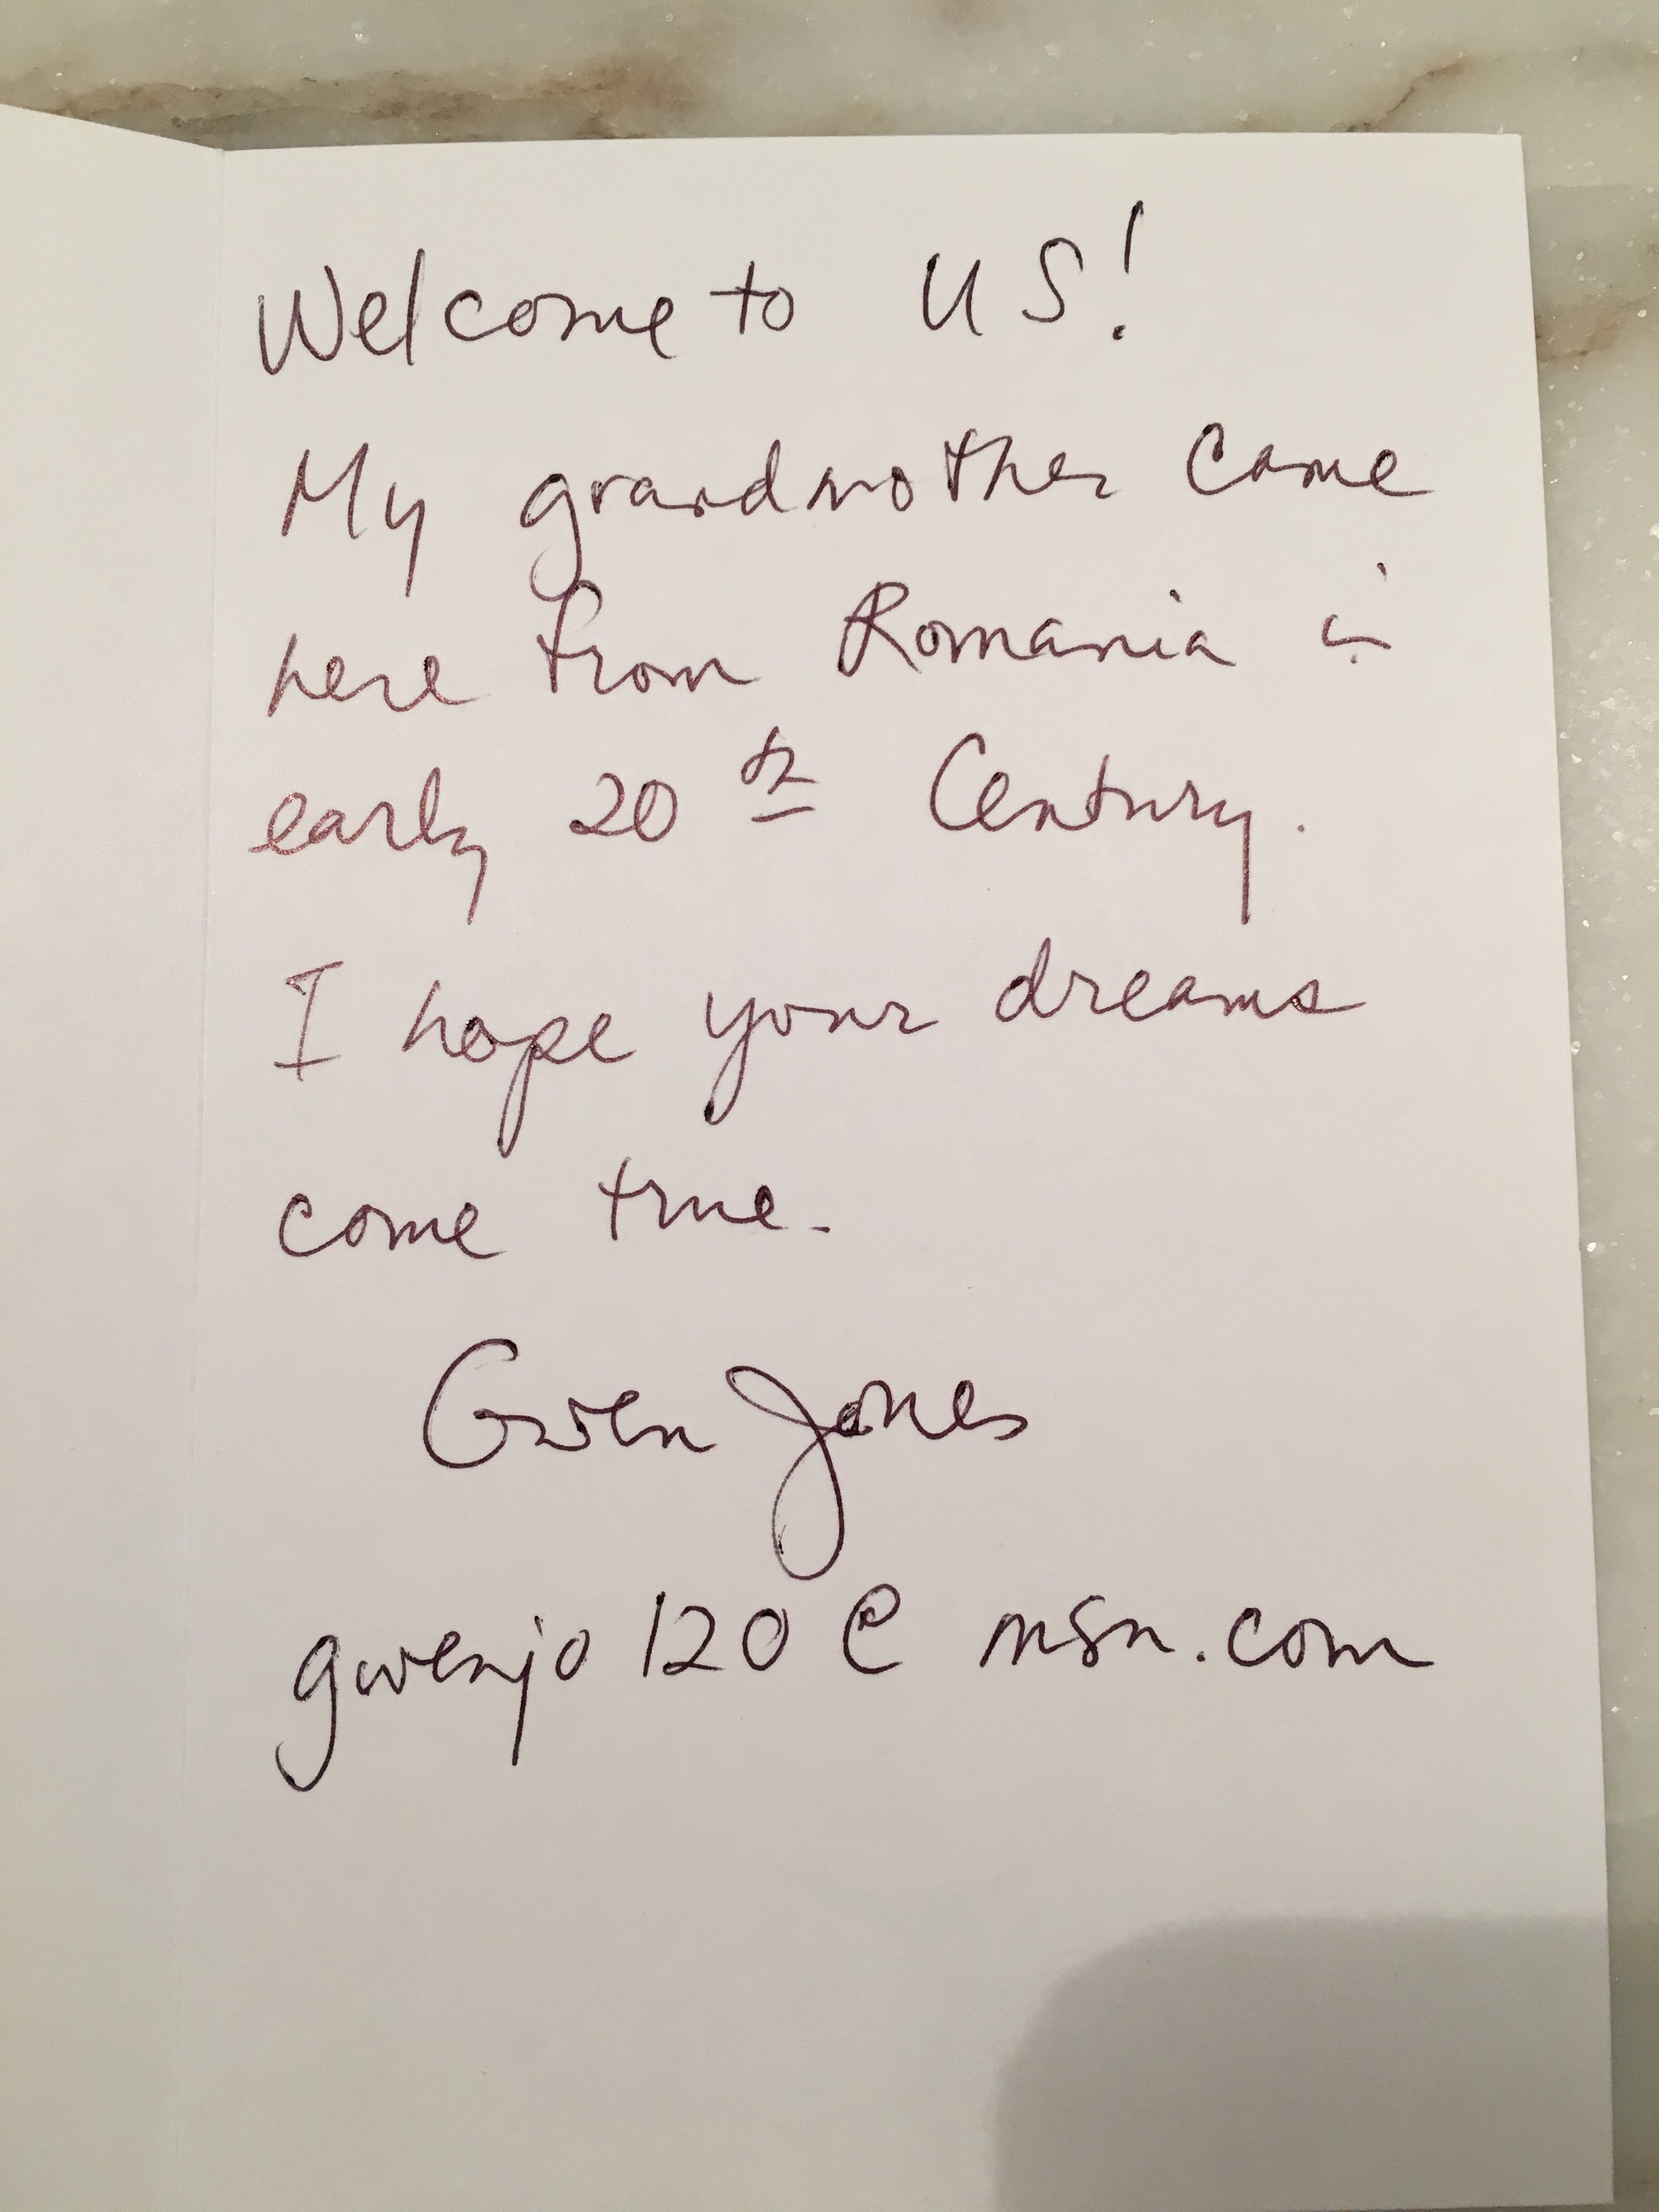 Welcome to US!
My grandmother came
here from Romania in
early 20th Century.
I hope your dreams
come true.
Gwen Jones
gwenjo120@msn.com